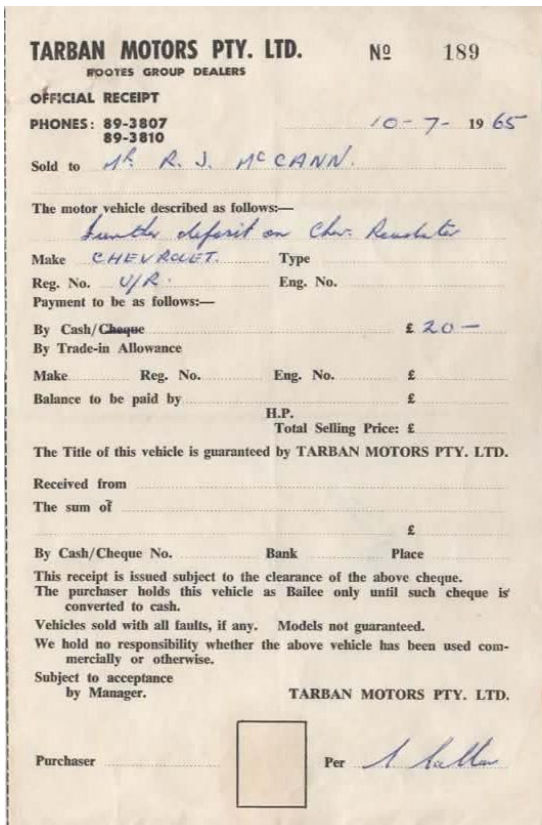 TARBAN MOTORS PTY. LTD. Nº 189
ROOTES GROUP DEALERS
OFFICIAL RECEIPT
PHONES: 89-3807
89-3810
10-7-1965
Sold to Mr R. J. McCANN.
The motor vehicle described as follows:—
Further deposit on Chev. Roadster
Make CHEVROLET. Type
Reg. No. U/R. Eng. No.
Payment to be as follows:—
By Cash/Cheque £ 20 —
By Trade-in Allowance
Make Reg. No. Eng. No. £
Balance to be paid by £
H.P.
Total Selling Price: £
The Title of this vehicle is guaranteed by TARBAN MOTORS PTY. LTD.
Received from
The sum of
£
By Cash/Cheque No. Bank Place
This receipt is issued subject to the clearance of the above cheque.
The purchaser holds this vehicle as Bailee only until such cheque is
converted to cash.
Vehicles sold with all faults, if any. Models not guaranteed.
We hold no responsibility whether the above vehicle has been used com-
mercially or otherwise.
Subject to acceptance
by Manager. TARBAN MOTORS PTY. LTD.
Purchaser Per